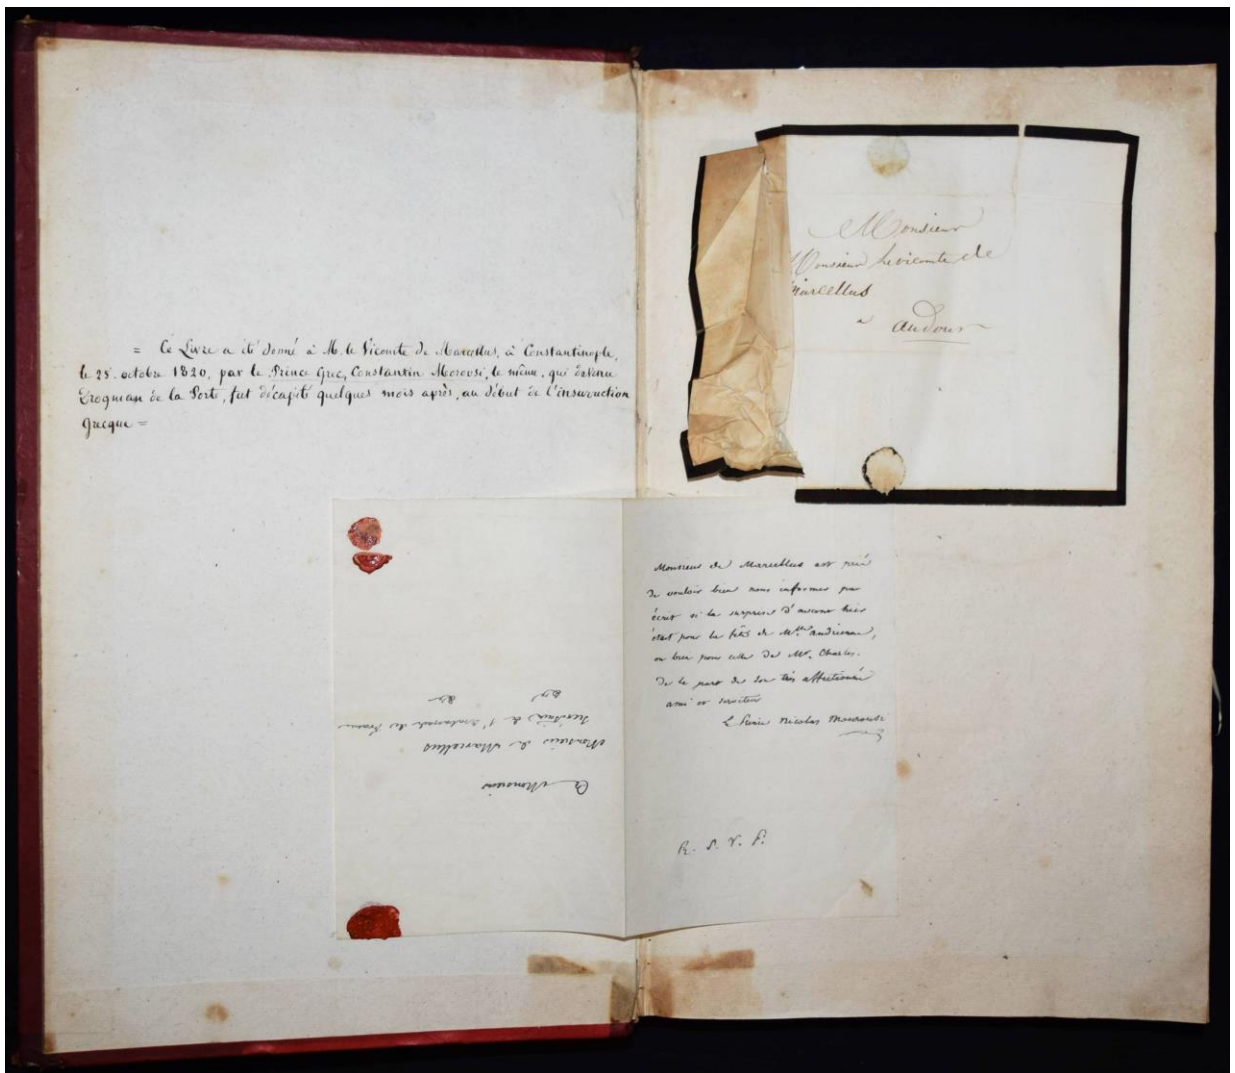 = Ce Livre a été donné à M. le Vicomte de Marcellus, à Constantinople,
le 25. octobre 1820, par le Prince Grec, Constantin Morousi, le même, qui devenu
Drogman de la Porte, fut décapité quelques mois après, au début de l'insurrection
grecque =
Monsieur
Monsieur le vicomte de
Marcellus
a audour
Monsieur de Marcellus est prié
de vouloir bien nous informer par
écrit si la surprise d' hier
était pour la fête de Mlle andrienne,
ou bien pour celle de Mr. Charles.
De la part de son très affectionné
ami et serviteur
Le Prince Nicolas Mourousi
R. S. V. P.
A Monsieur
Monsieur de Marcellus
secrétaire de l'ambassade de France